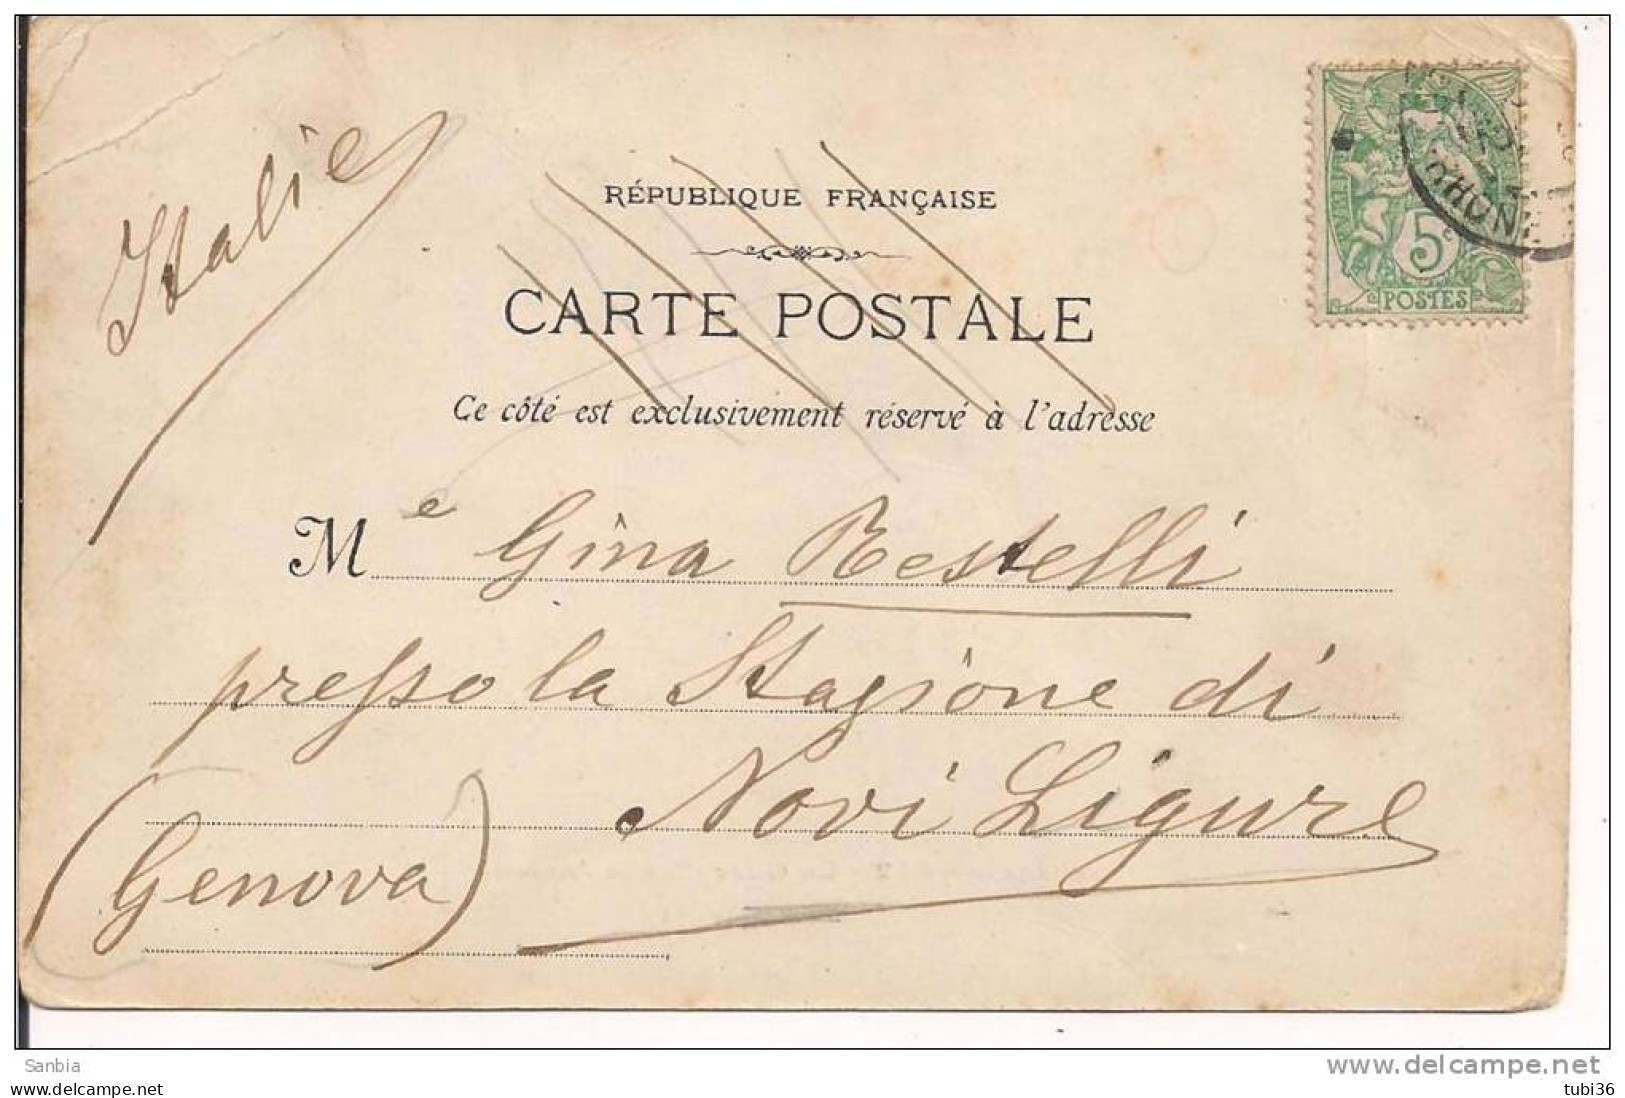 Italie
RÉPUBLIQUE FRANÇAISE
CARTE POSTALE
Ce côté est exclusivement réservé à l'adresse
5
POSTES
RHONE
Me Gina Restelli
presso la Stagione di
Novi Ligure
(Genova)
Sanbia
www.delcampe.net
tubi36